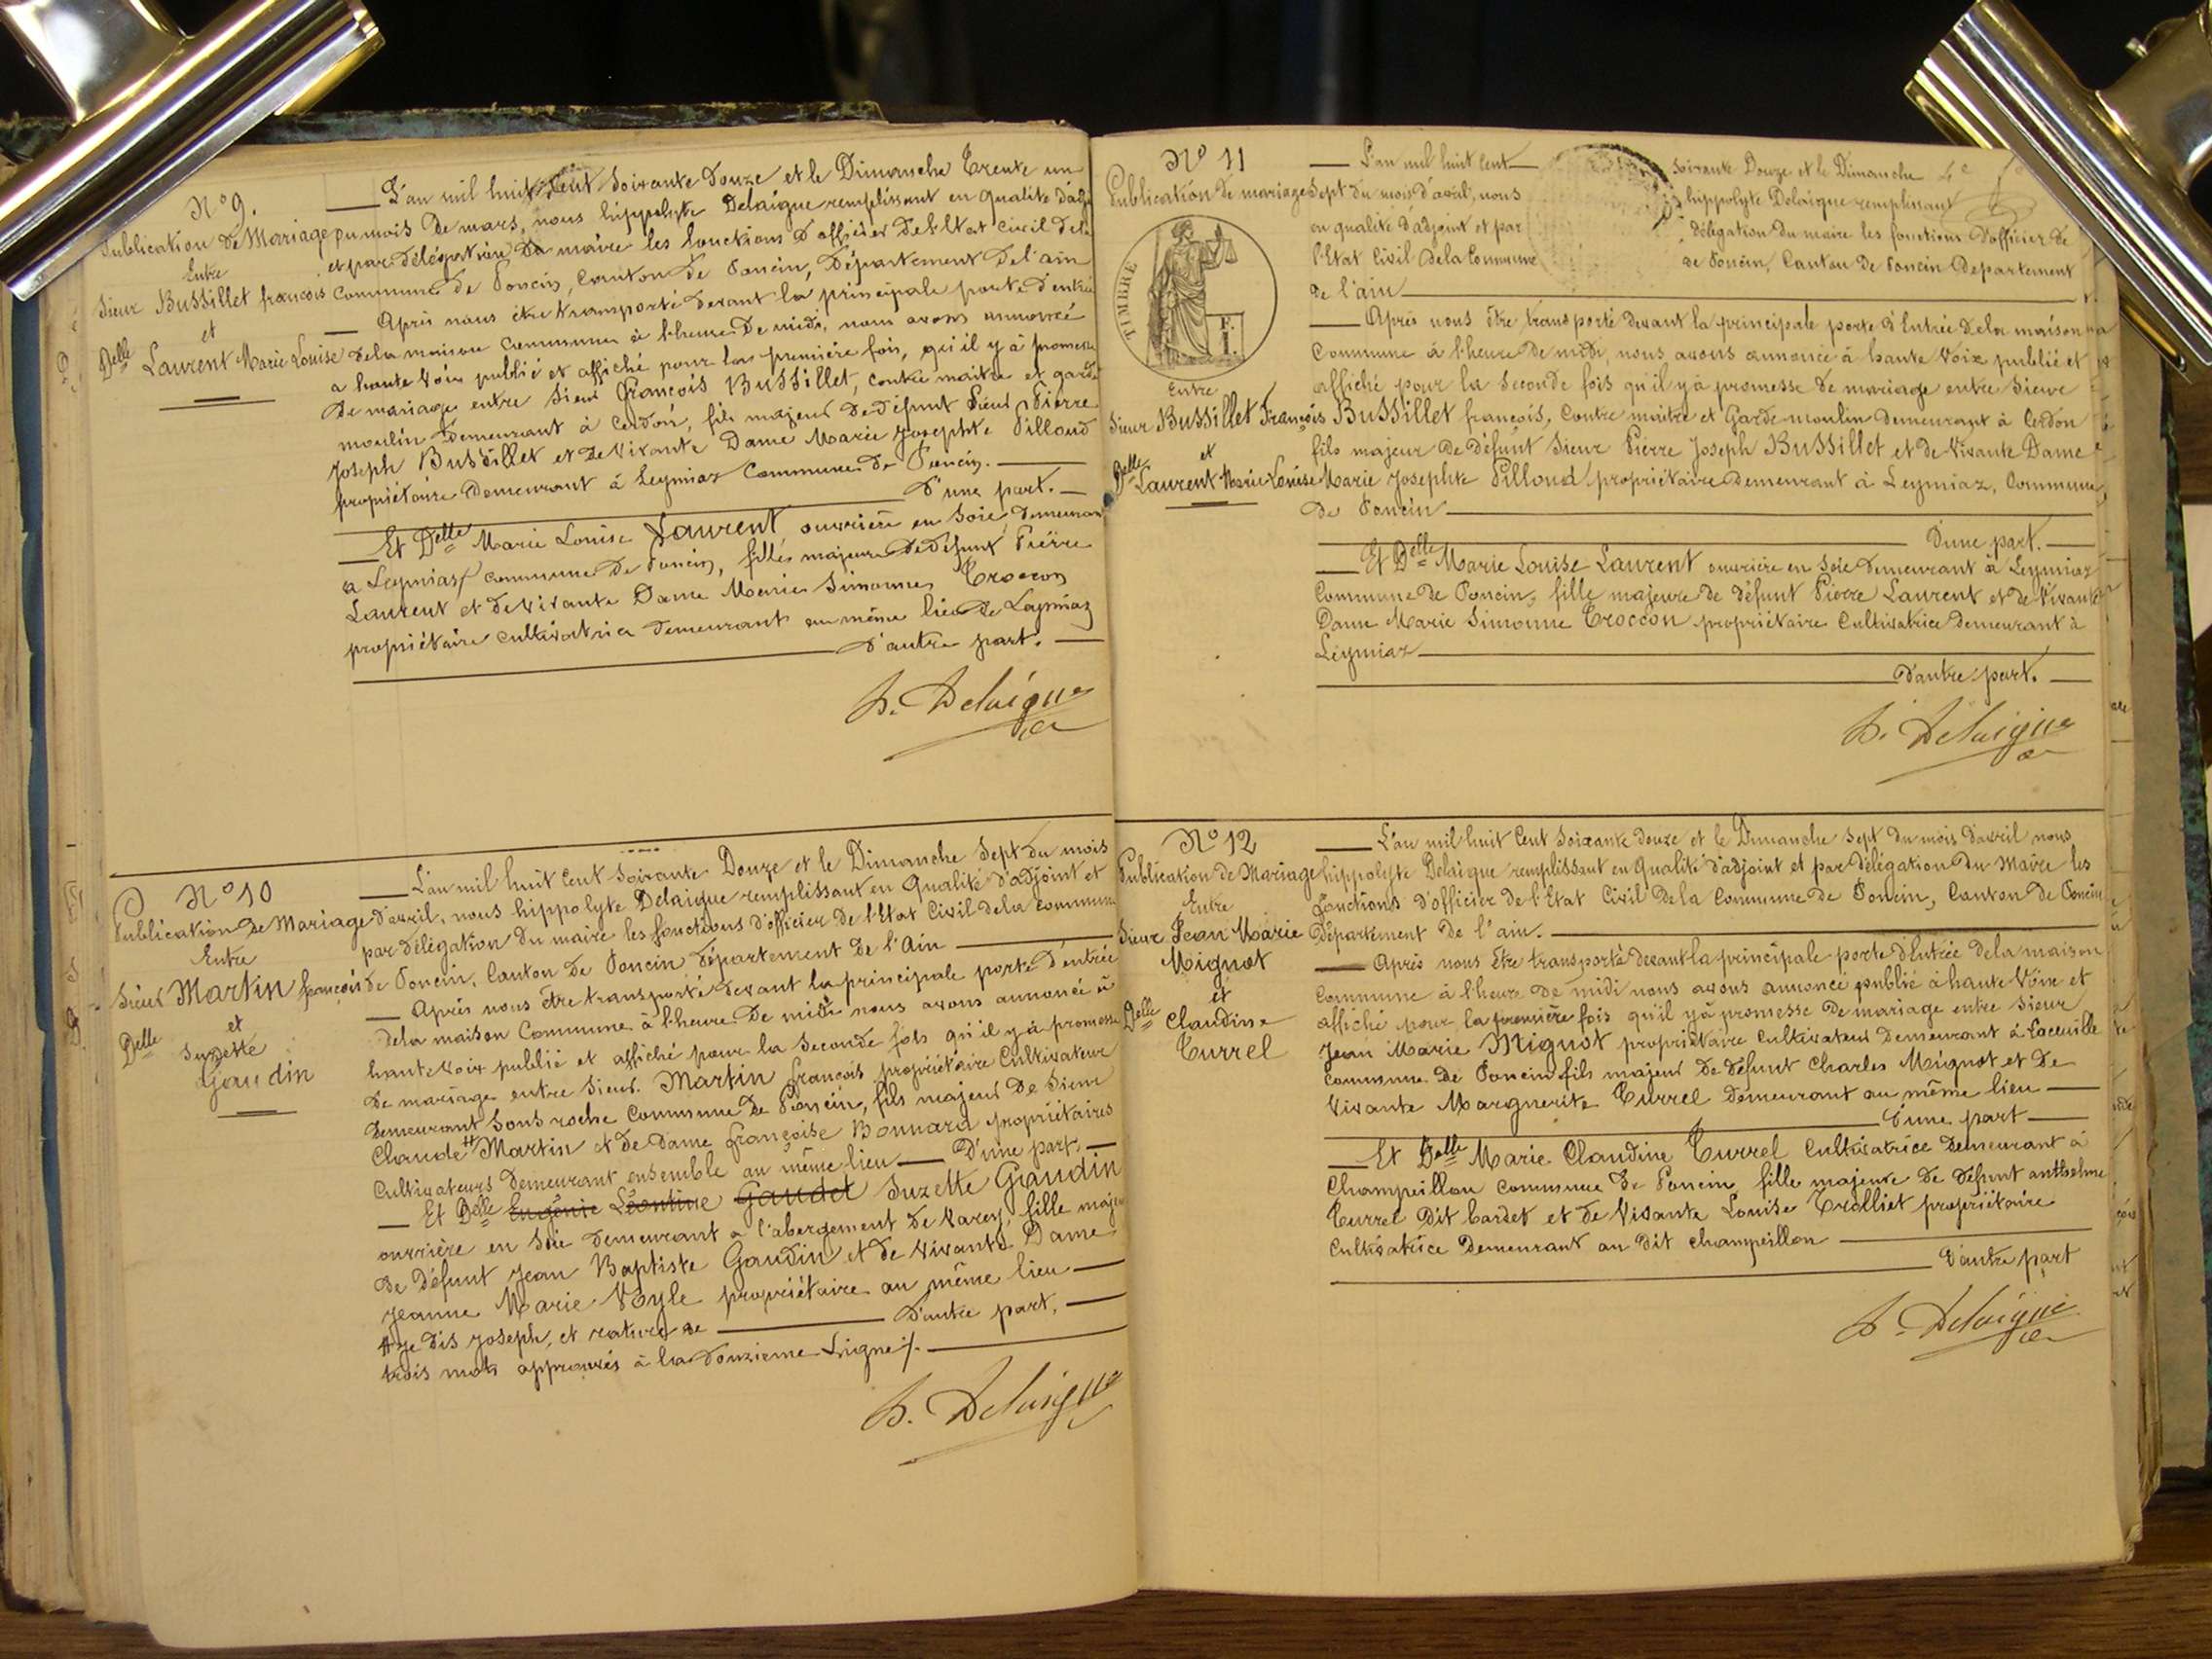 N° 9.
Publication de Mariage
Entre
Sieur Bussillet francois
et
Delle Laurent Marie Louise
L'an mil huit Cent Soixante douze et le Dimanche Trente un
du mois de mars, nous hippolyte Delaigue remplissant en qualité d'adj
et par délégation du maire les fonctions d'officier de l'Etat civil dela
Commune de Poncin, Canton de Poncin, Département de l'ain
Après nous être transporté devant la principale porte d'entrée
dela maison Commune à l'heure de midi, nous avons annoncé
a haute Voix publié et affiché pour la première fois, qu'il y à promesse
de mariage entre Sieur François Bussillet, contre maitre et garde
moulin demeurant à Cerdon, fils majeur de défunt Sieur Pierre
Joseph Bussillet et de Vivante Dame Marie Josephte Pilloud
propriétaire demeurant à Leymiaz Commune de Poncin.
D'une part.
Et Delle Marie Louise Laurent ouvrière en Soie, demeurant
a Leymiaz commune de Poncin, fille majeure de défunt Pierre
Laurent et de Vivante Dame Marie Simonne Troccon
propriétaire cultivatrice demeurant au même lieu de Leymiaz
d'autre part.
h. Delaigue
N° 10
Publication de Mariage
Entre
Sieur Martin françois
et
Delle Suzette
Gaudin
L'an mil huit Cent Soixante Douze et le Dimanche Sept du mois
d'avril, nous hippolyte Delaigue remplissant en Qualité d'adjoint et
par délégation du maire les fonctions d'officier de l'Etat Civil dela Commune
de Poncin, Canton de Poncin département de l'Ain
Après nous être transporté devant la principale porte d'entrée
dela maison Commune à l'heure de midi nous avons annoncé à
haute voix publié et affiché pour la Seconde fois qu'il y à promesse
de mariage entre Sieur Martin françois propriétaire Cultivateur
demeurant Sous roche Commune de Poncin, fils majeur de Sieur
Claude # Martin et de Dame françoise Bonnard propriétaires
Cultivateurs demeurant ensemble au même lieu D'une part,
Et Delle Eugénie Léontine Gaudet Suzette Gaudin
ouvrière en Soie demeurant a l'abergement de Varey, fille majeu
de Défunt Jean Baptiste Gaudin et de Vivante Dame
Jeanne Marie Voyle propriétaire au même lieu
# Je dis Joseph, et rature de d'autre part,
trois mots approuvés à la douzieme Ligne /.
h. Delaigue
N° 11
Publication de mariage
TIMBRE
F.
Entre
Sieur Bussillet François
et
Delle Laurent Marie Louise
L'an mil huit Cent Soixante Douze et le Dimanche
Sept du mois d'avril, nous hippolyte Delaigue remplissant
en qualité d'adjoint et par délégation du maire les fonctions d'officier de
l'Etat Civil dela Commune de Poncin, Canton de Poncin Departement
de l'ain
Après nous être transporté devant la principale porte d'Entrée dela maison
Commune à l'heure de midi, nous avons annoncé à haute Voix publié et
affiché pour la Seconde fois qu'il y à promesse de mariage entre Sieur
Bussillet françois, Contre maitre et Garde moulin demeurant à Cerdon
fils majeur de défunt Sieur Pierre Joseph Bussillet et de Vivante Dame
Marie Josephte Pilloud propriétaire demeurant à Leymiaz, Commune
de Poncin
D'une part.
Et Delle Marie Louise Laurent ouvrière en Soie demeurant à Leymiaz
Commune de Poncin, fille majeure de défunt Pierre Laurent et de Vivante
Dame Marie Simonne Troccon propriétaire Cultivatrice demeurant à
Leymiaz
D'autre part.
h. Delaigue
N° 12
Publication de Mariage
Entre
Sieur Jean Marie
Mignot
et
Delle Claudine
Turrel
L'an mil huit Cent Soixante douze et le Dimanche Sept du mois d'avril nous
hippolyte Delaigue remplissant en Qualité d'adjoint et par délégation du Maire les
fonctions d'officier de l'Etat Civil dela Commune de Poncin, Canton de Poncin
Département de l'ain.
Après nous être transporté devant la principale porte d'Entrée dela maison
Commune à l'heure de midi nous avons annoncé publié à haute Voix et
affiché pour la première fois qu'il y à promesse de mariage entre Sieur
Jean Marie Mignot propriétaire Cultivateur demeurant à
commune de Poncin fils majeur de défunt Charles Mignot et de
Vivante Marguerite Turrel demeurant au même lieu
D'une part
Et Delle Marie Claudine Turrel Cultivatrice demeurant à
Champeillon commune de Poncin fille majeure de défunt anthelme
Turrel dit Cardet et de Vivante Louise Trolliet propriétaire
Cultivatrice demeurant au dit champeillon
D'autre part
h. Delaigue